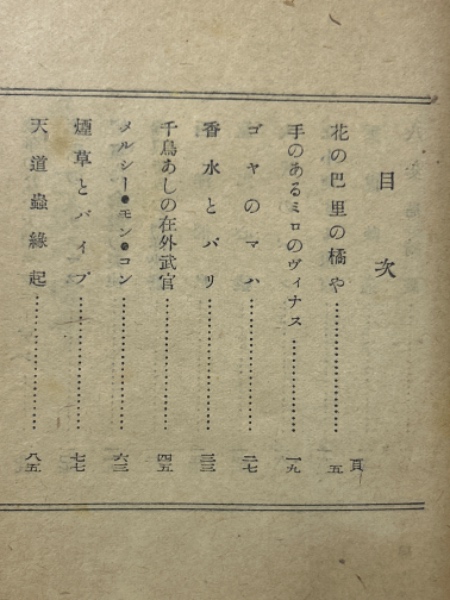 目次
頁
花の巴里の橘や……………………五
手のあるミロのヴィナス……………………一九
ゴヤのマハ……………………二七
香水とパリ……………………三三
千鳥あしの在外武官……………………四五
メルシー・モン・コン……………………六三
煙草とパイプ……………………七七
天道蟲緣起……………………八五